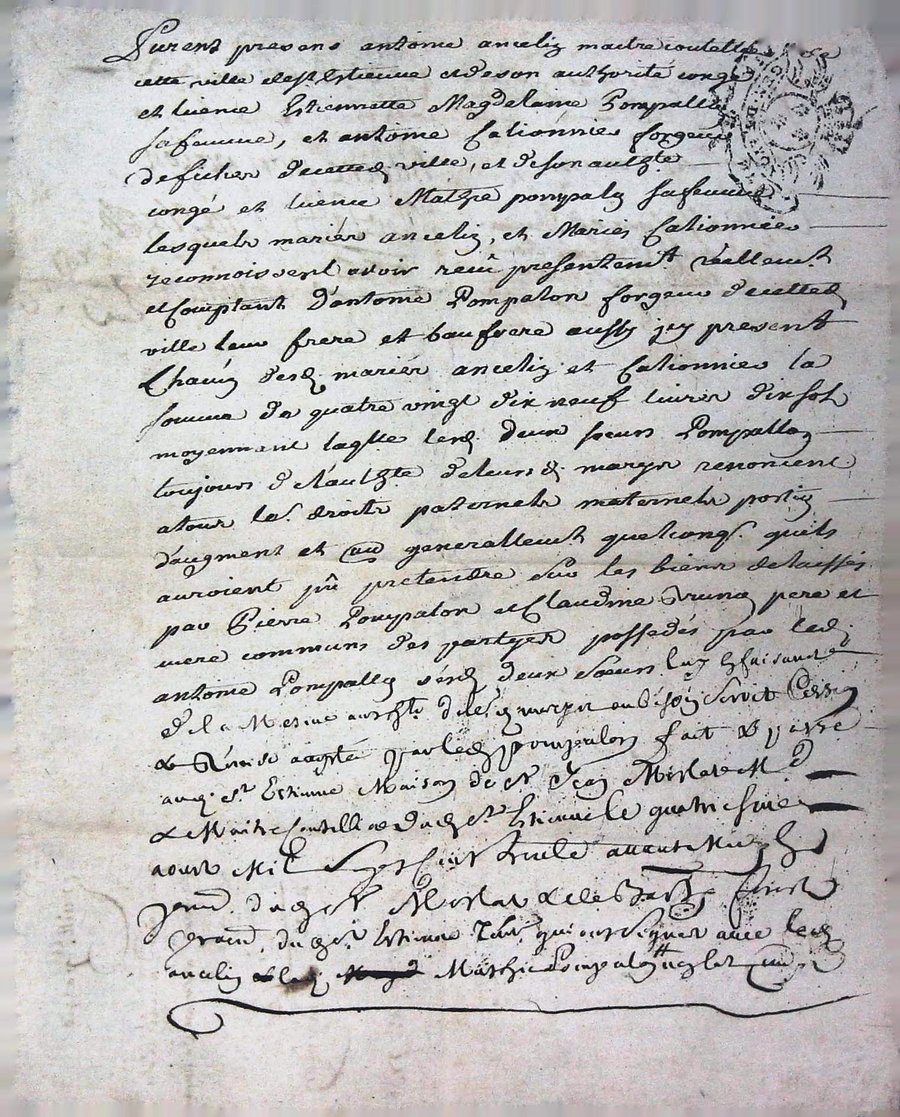 Furent presens antoine ancelin maitre coutellier de
cette ville de st Estienne et de son authorité congé
et licence Estiennette Magdelaine Pompallon
sa femme, et antoine Calionnier forgeur
de fiches de cetted ville, et de son authte
congé et licence Mathie pompalon sa femme
lesquels mariés ancelin, et Mariés Calionnier
reconnoissent avoir reçû presentemt réellement
et Comptant d'antoine Pompalon forgeur de cetted
ville leur frere et baufrere aussy jcy present
Chacun desd mariés ancelin et Calionnier la
somme de quatre vingt dix neuf livres dix sols
moyennant laqlle lesd. deux soeurs Pompallon
toujours de l'authte de leursd. marys renoncent
a tous les droits paternels maternels portion
d'augment et generallement quelconq. quils
auroient pû pretendre sur les biens delaissés
par Pierre Pompalon et Claudine Brunon pere et
mere communs des partyes possedés par led.
antoine Pompallon sesd deux soeurs luy en faisant
de la Mesme authte de lesd marys
& Remise accepté par led pompalon fait & passé
aud. st Estienne Maison de sr Jean Merlat Md
& Maitre Coutellier dud st Estienne le quatriesme
aoust Mil sept cent trente avant Midy
presens dud sr Merlat &
dud. st Estienne qui ont signés avec led
ancelin Mathie Pompalon